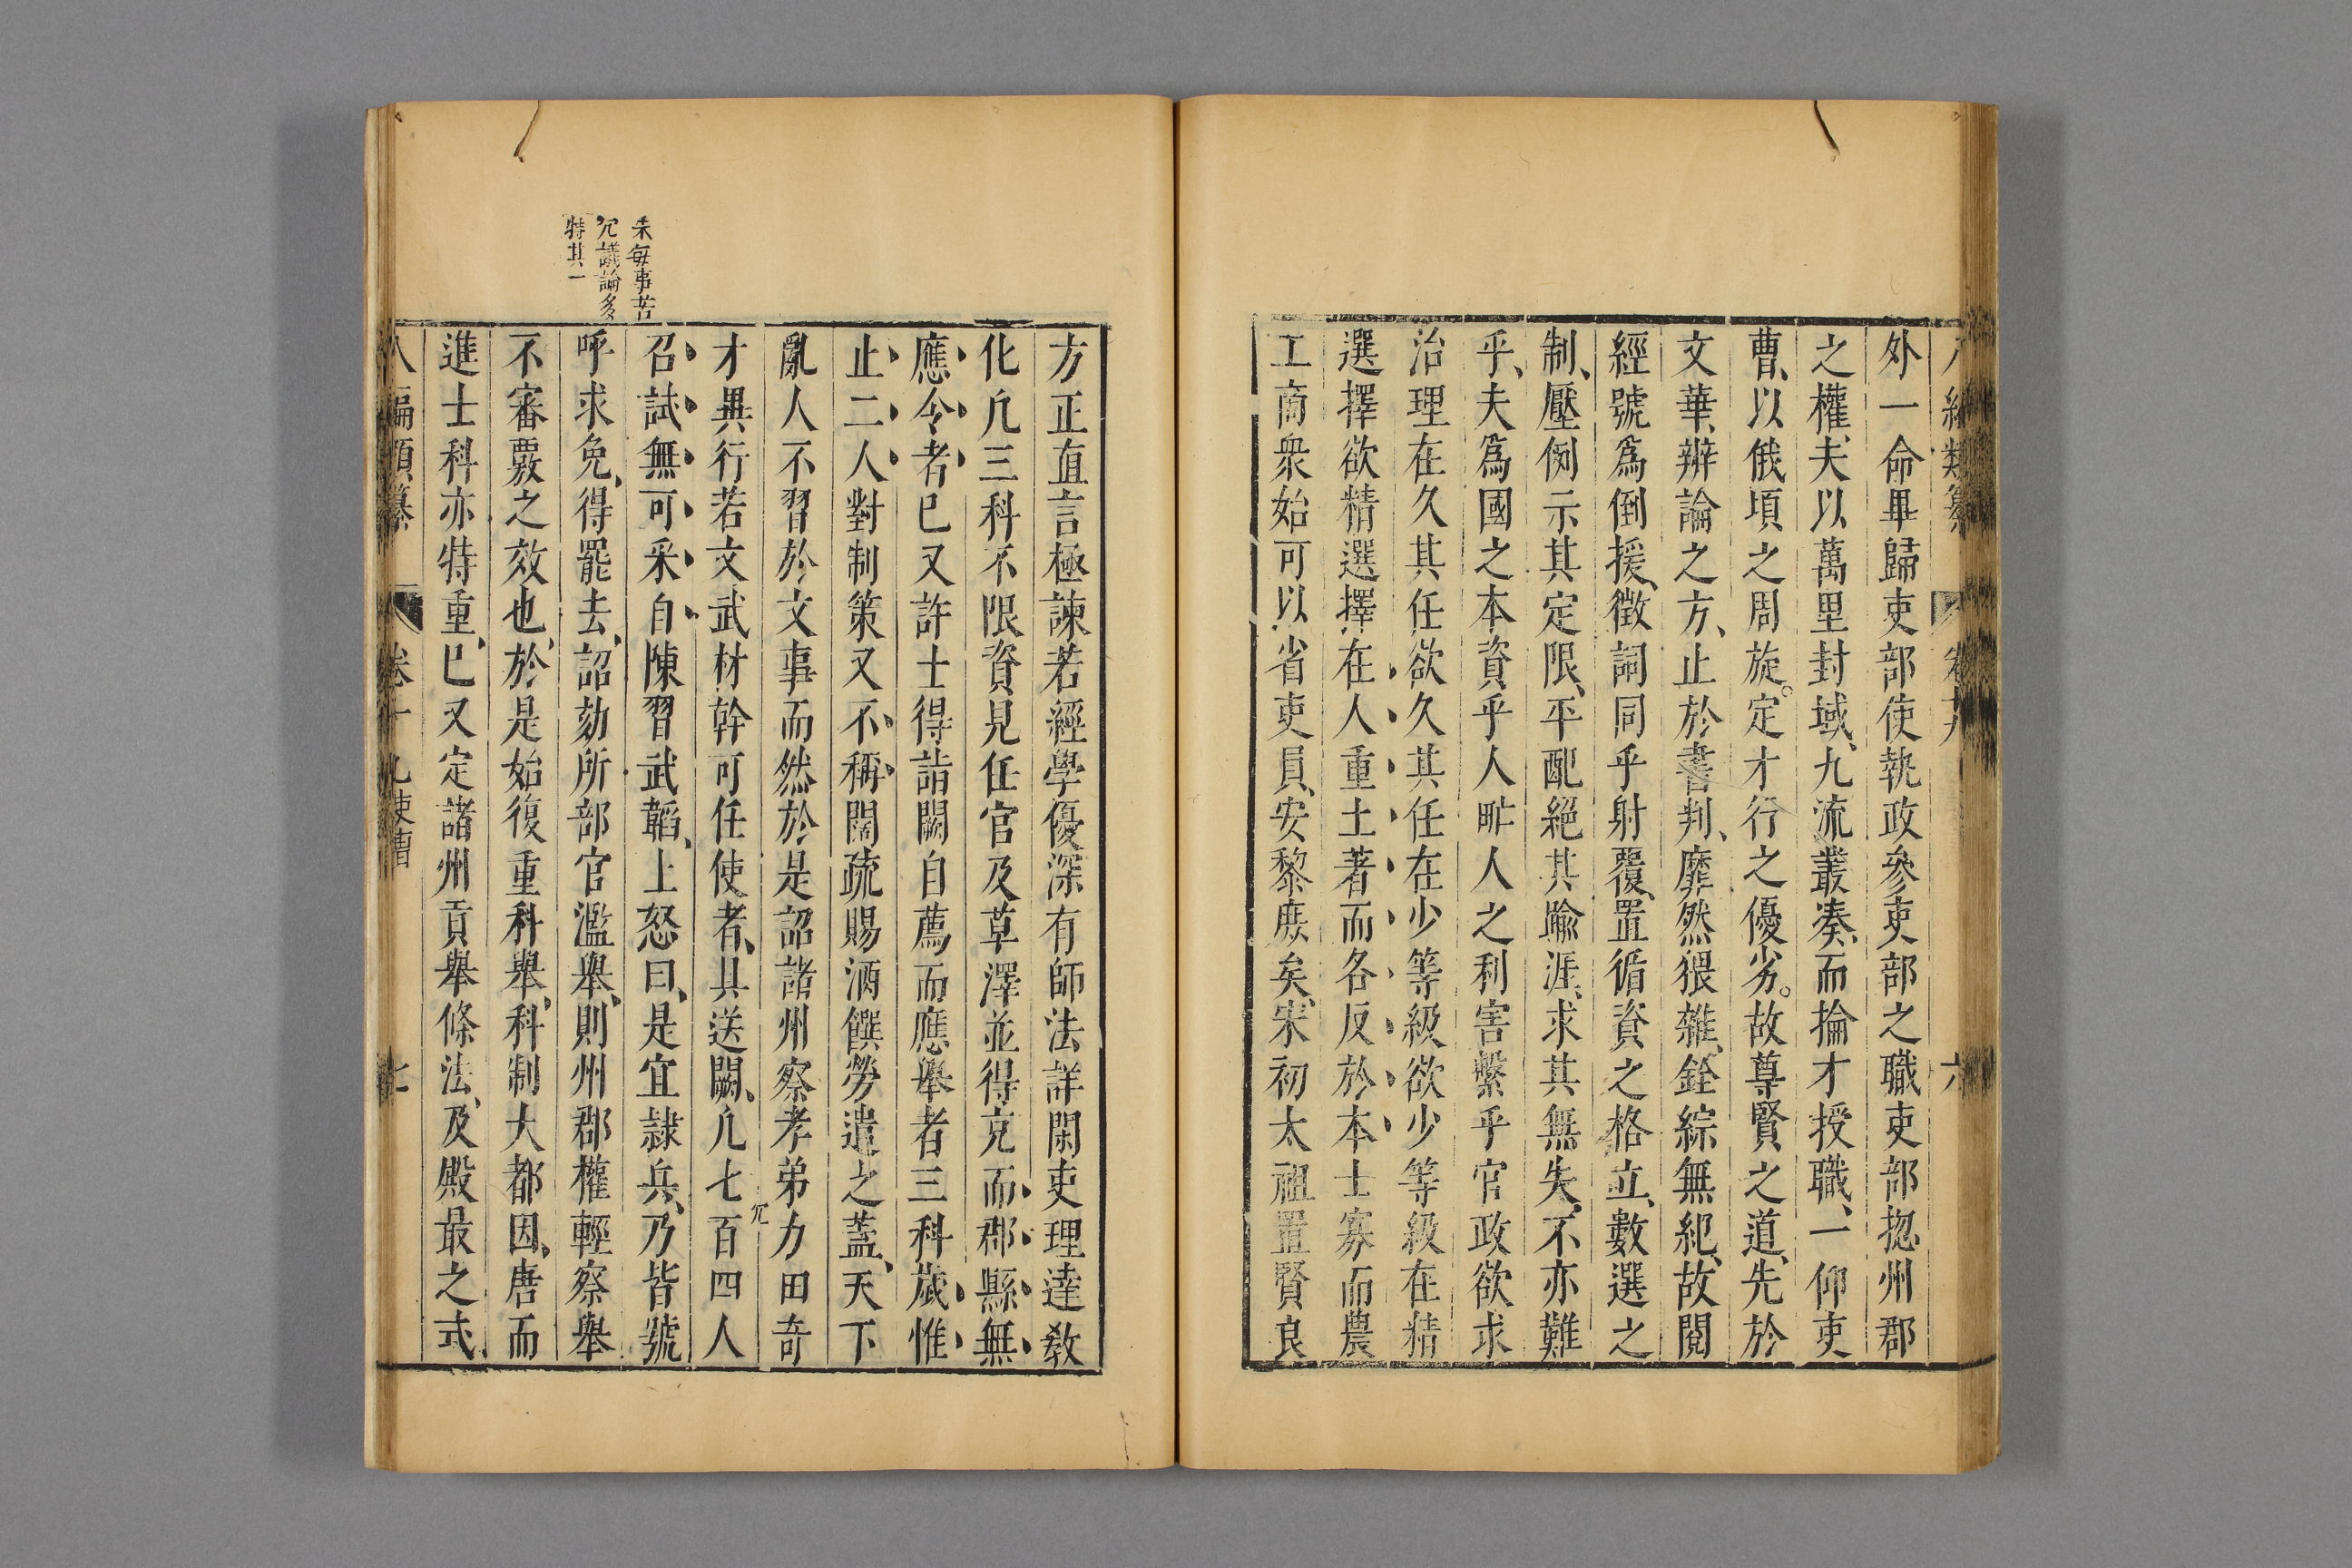 外一命畢歸吏部使執政參吏部之職吏部揔州郡
之權、夫以萬里封域、九流叢湊、而掄才授職、一仰吏
曹、以俄頃之周旋。定才行之優劣。故尊賢之道、先於
文華、辨論之方、止於書判、靡然猥雜、銓綜無紀、故閱
經號爲倒援、徵詞同乎射覆、置循資之格立、數選之
制、壓例示其定限、平配絕其踰涯、求其無失、不亦難
乎、夫爲國之本資乎人甿人之利害繫乎官政欲求
治理在久其任欲久其任在少等級欲少等級在精
選擇欲精選擇在人重土著而各反於本士寡而農
工商衆始可以省吏員、安黎庶矣、宋初太祖置賢良
方正直言極諫若經學優深有師法詳閑吏理達敎
化凢三科不限資見任官及草澤並得克而郡縣無
應令者已又許士得詣闕自薦而應舉者三科歲惟
止二人對制策又不稱闊疏賜酒饌勞遣之蓋、天下
亂人不習於文事而然於是詔諸州察孝弟力田奇
才異行若文武材幹可任使者、具送闕、凢七百四人
冗
召試無可采自陳習武韜、上怒曰、是宜隷兵、乃皆號
呼求免、得罷去、詔劾所部官濫舉、則州郡權輕察舉
不審覈之效也、於是始復重科舉、科制大都因、唐而
進士科亦特重、已又定諸州貢舉條法、及殿最之式
八編類纂 卷十九 吏曹 七
釆每事苦
冗議論多
特其一